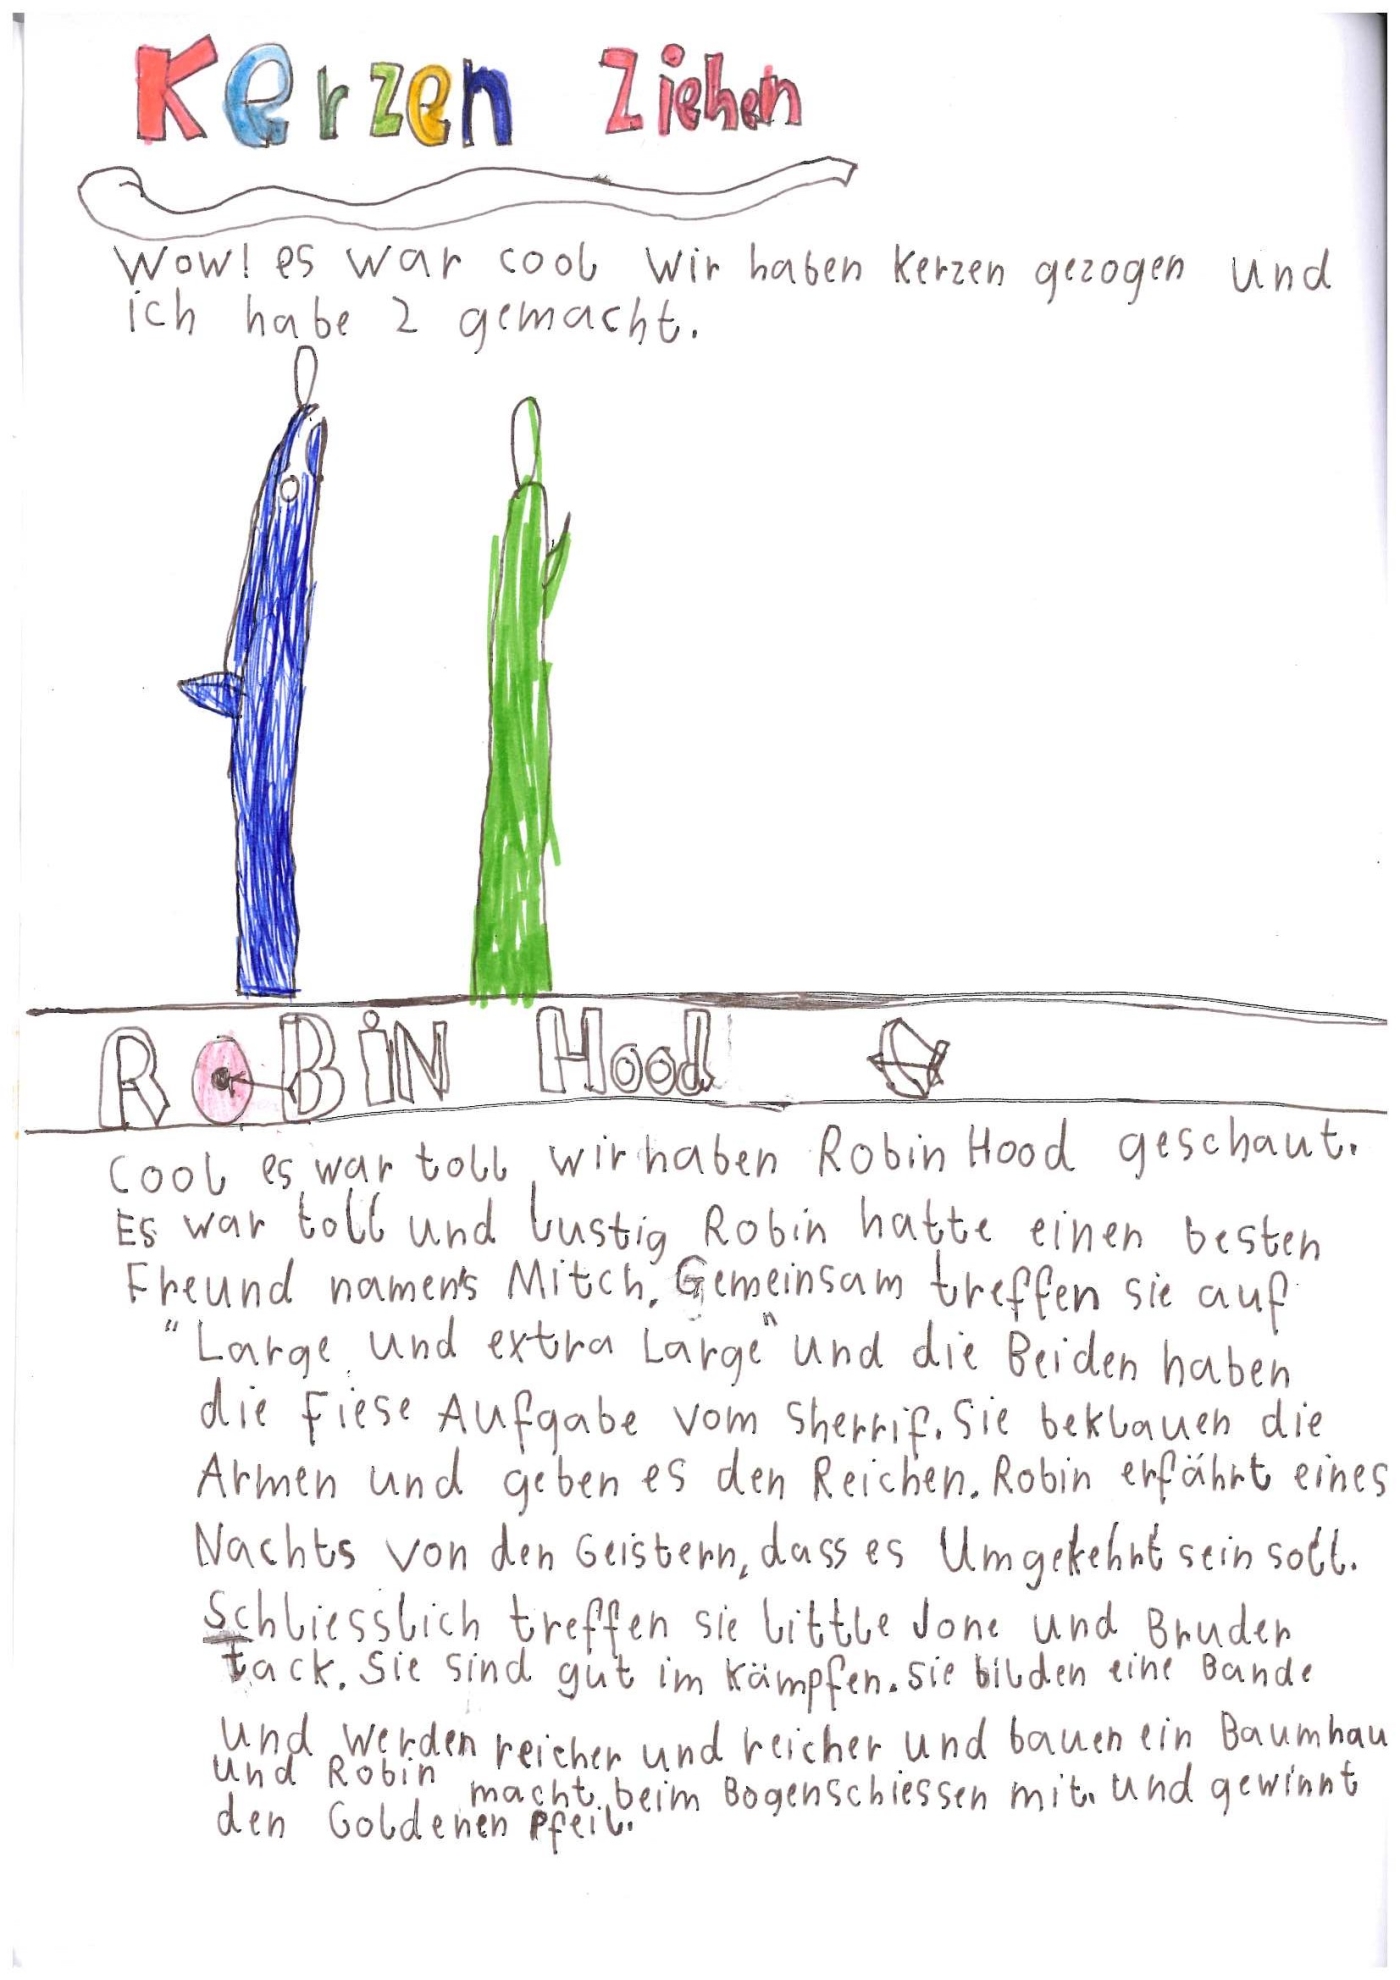 Kerzen Ziehen
Wow! es war cool wir haben Kerzen gezogen und
ich habe 2 gemacht.
ROBIN Hood
Cool es war toll wir haben Robin Hood geschaut.
Es war toll und lustig Robin hatte einen besten
Freund namen's Mitch. Gemeinsam treffen sie auf
"Large und extra Large" und die Beiden haben
die Fiese Aufgabe vom Sherrif. Sie beklauen die
Armen und geben es den Reichen. Robin erfährt eines
Nachts von den Geistern, dass es Umgekehrt sein soll.
Schliesslich treffen sie little Jone und Bruder
tack. Sie sind gut im Kämpfen. sie bilden eine Bande
und werden reicher und reicher und bauen ein Baumhau
und Robin macht beim Bogenschiessen mit. und gewinnt
den Goldenen Pfeil.